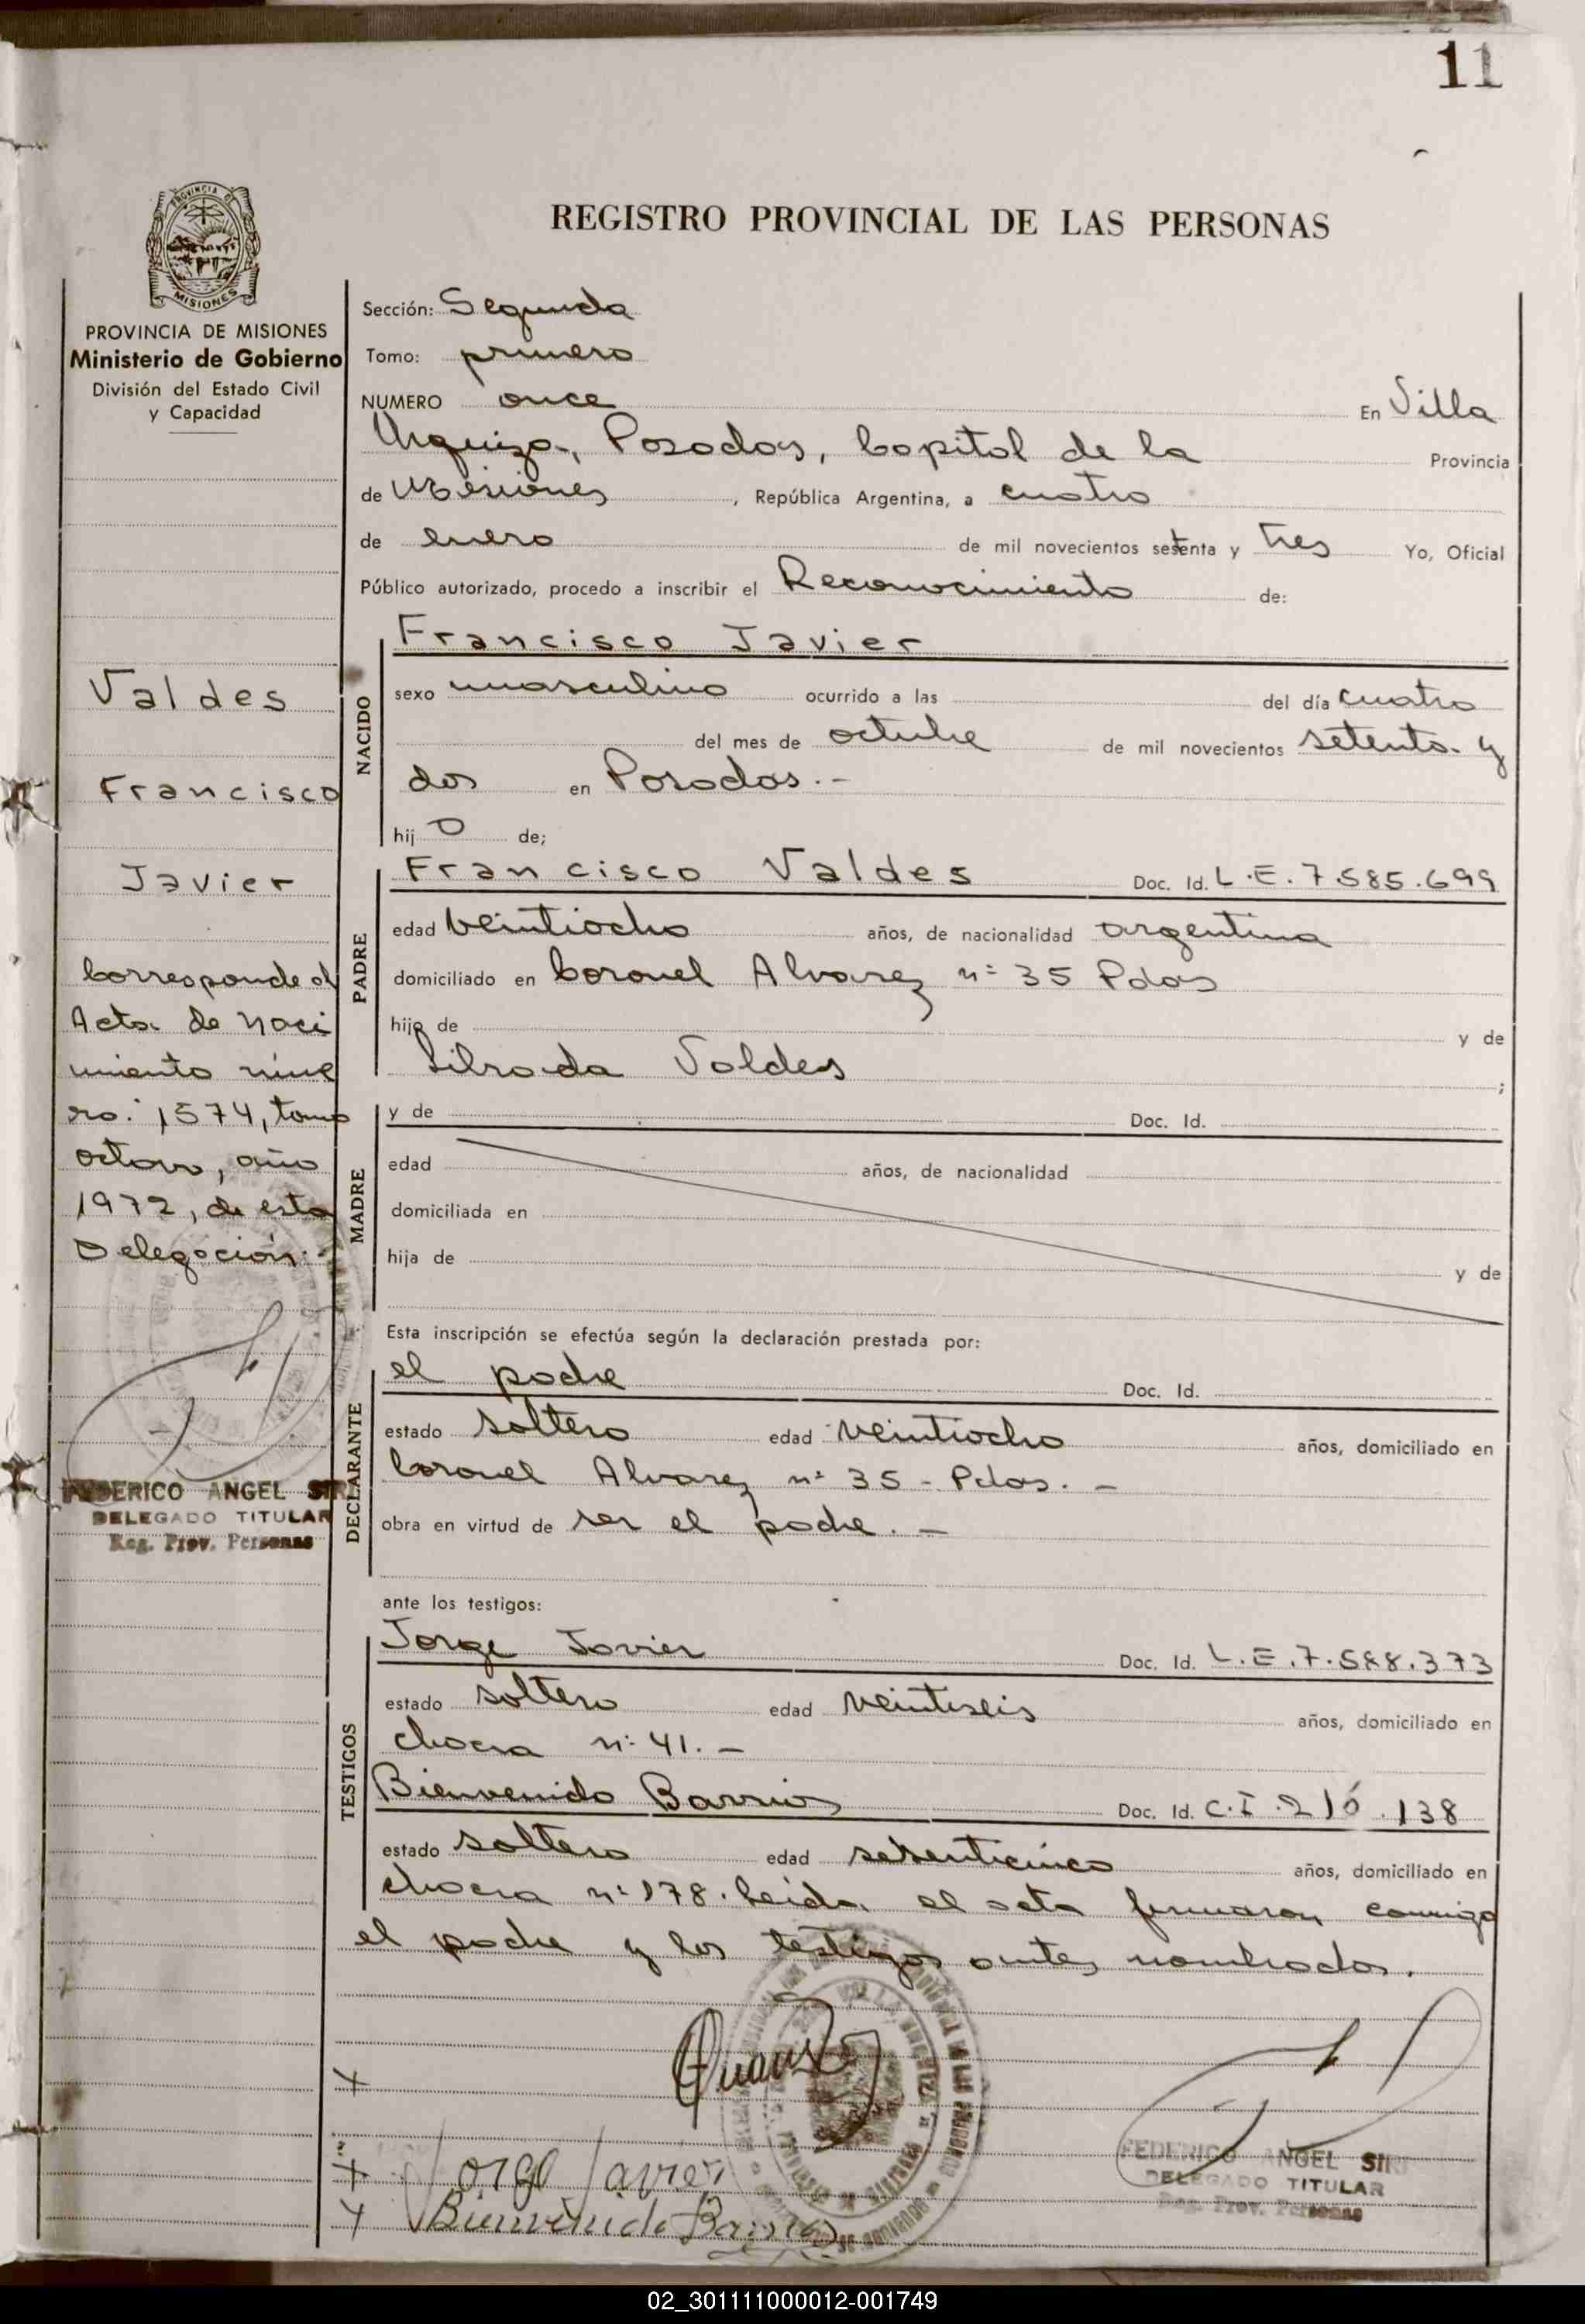 11
PROVINCIA DE
MISIONES
REGISTRO PROVINCIAL DE LAS PERSONAS
PROVINCIA DE MISIONES
Ministerio de Gobierno
División del Estado Civil
y Capacidad
Valdes
Francisco
Javier
Corresponde al
Acta de naci
miento núme
ro: 1574, tomo
octavo, año
1972, de esta
Delegación.-
FEDERICO ANGEL
DELEGADO TITULAR
Reg. Prov. Personas
Sección: Segunda
Tomo: primero
NUMERO once En Villa
Urquiza, Posadas, Capital de la Provincia
de Misiones, República Argentina, a cuatro
de enero de mil novecientos setenta y tres Yo, Oficial
Público autorizado, procedo a inscribir el Reconocimiento de:
NACIDO
Francisco Javier
sexo masculino ocurrido a las del día cuatro
del mes de octubre de mil novecientos setenta y
dos en Posadas.-
hijo de;
PADRE
Francisco Valdes Doc. Id. L.E.7.585.699
edad veintiocho años, de nacionalidad argentina
domiciliado en Coronel Alvarez nº 35 Pdas
hijo de y de
Librada Valdes ;
MADRE
y de Doc. Id.
edad años, de nacionalidad
domiciliada en
hija de y de
Esta inscripción se efectúa según la declaración prestada por:
DECLARANTE
el padre Doc. Id.
estado soltero edad veintiocho años, domiciliado en
Coronel Alvarez nº 35 - Pdas.-
obra en virtud de ser el padre.-
ante los testigos:
TESTIGOS
Jorge Javier Doc. Id. L.E.7.588.373
estado soltero edad veintiseis años, domiciliado en
chacra nº 41.-
Bienvenido Barrios Doc. Id. C.I. 216.138
estado soltero edad años, domiciliado en
chacra nº 178. Leida el acta firmaron conmigo
el padre y los testigos antes nombrados.
Jorge Javier
Bienvenido Barrios
FEDERICO ANGEL
DELEGADO TITULAR
Reg. Prov. Personas
02_301111000012-001749